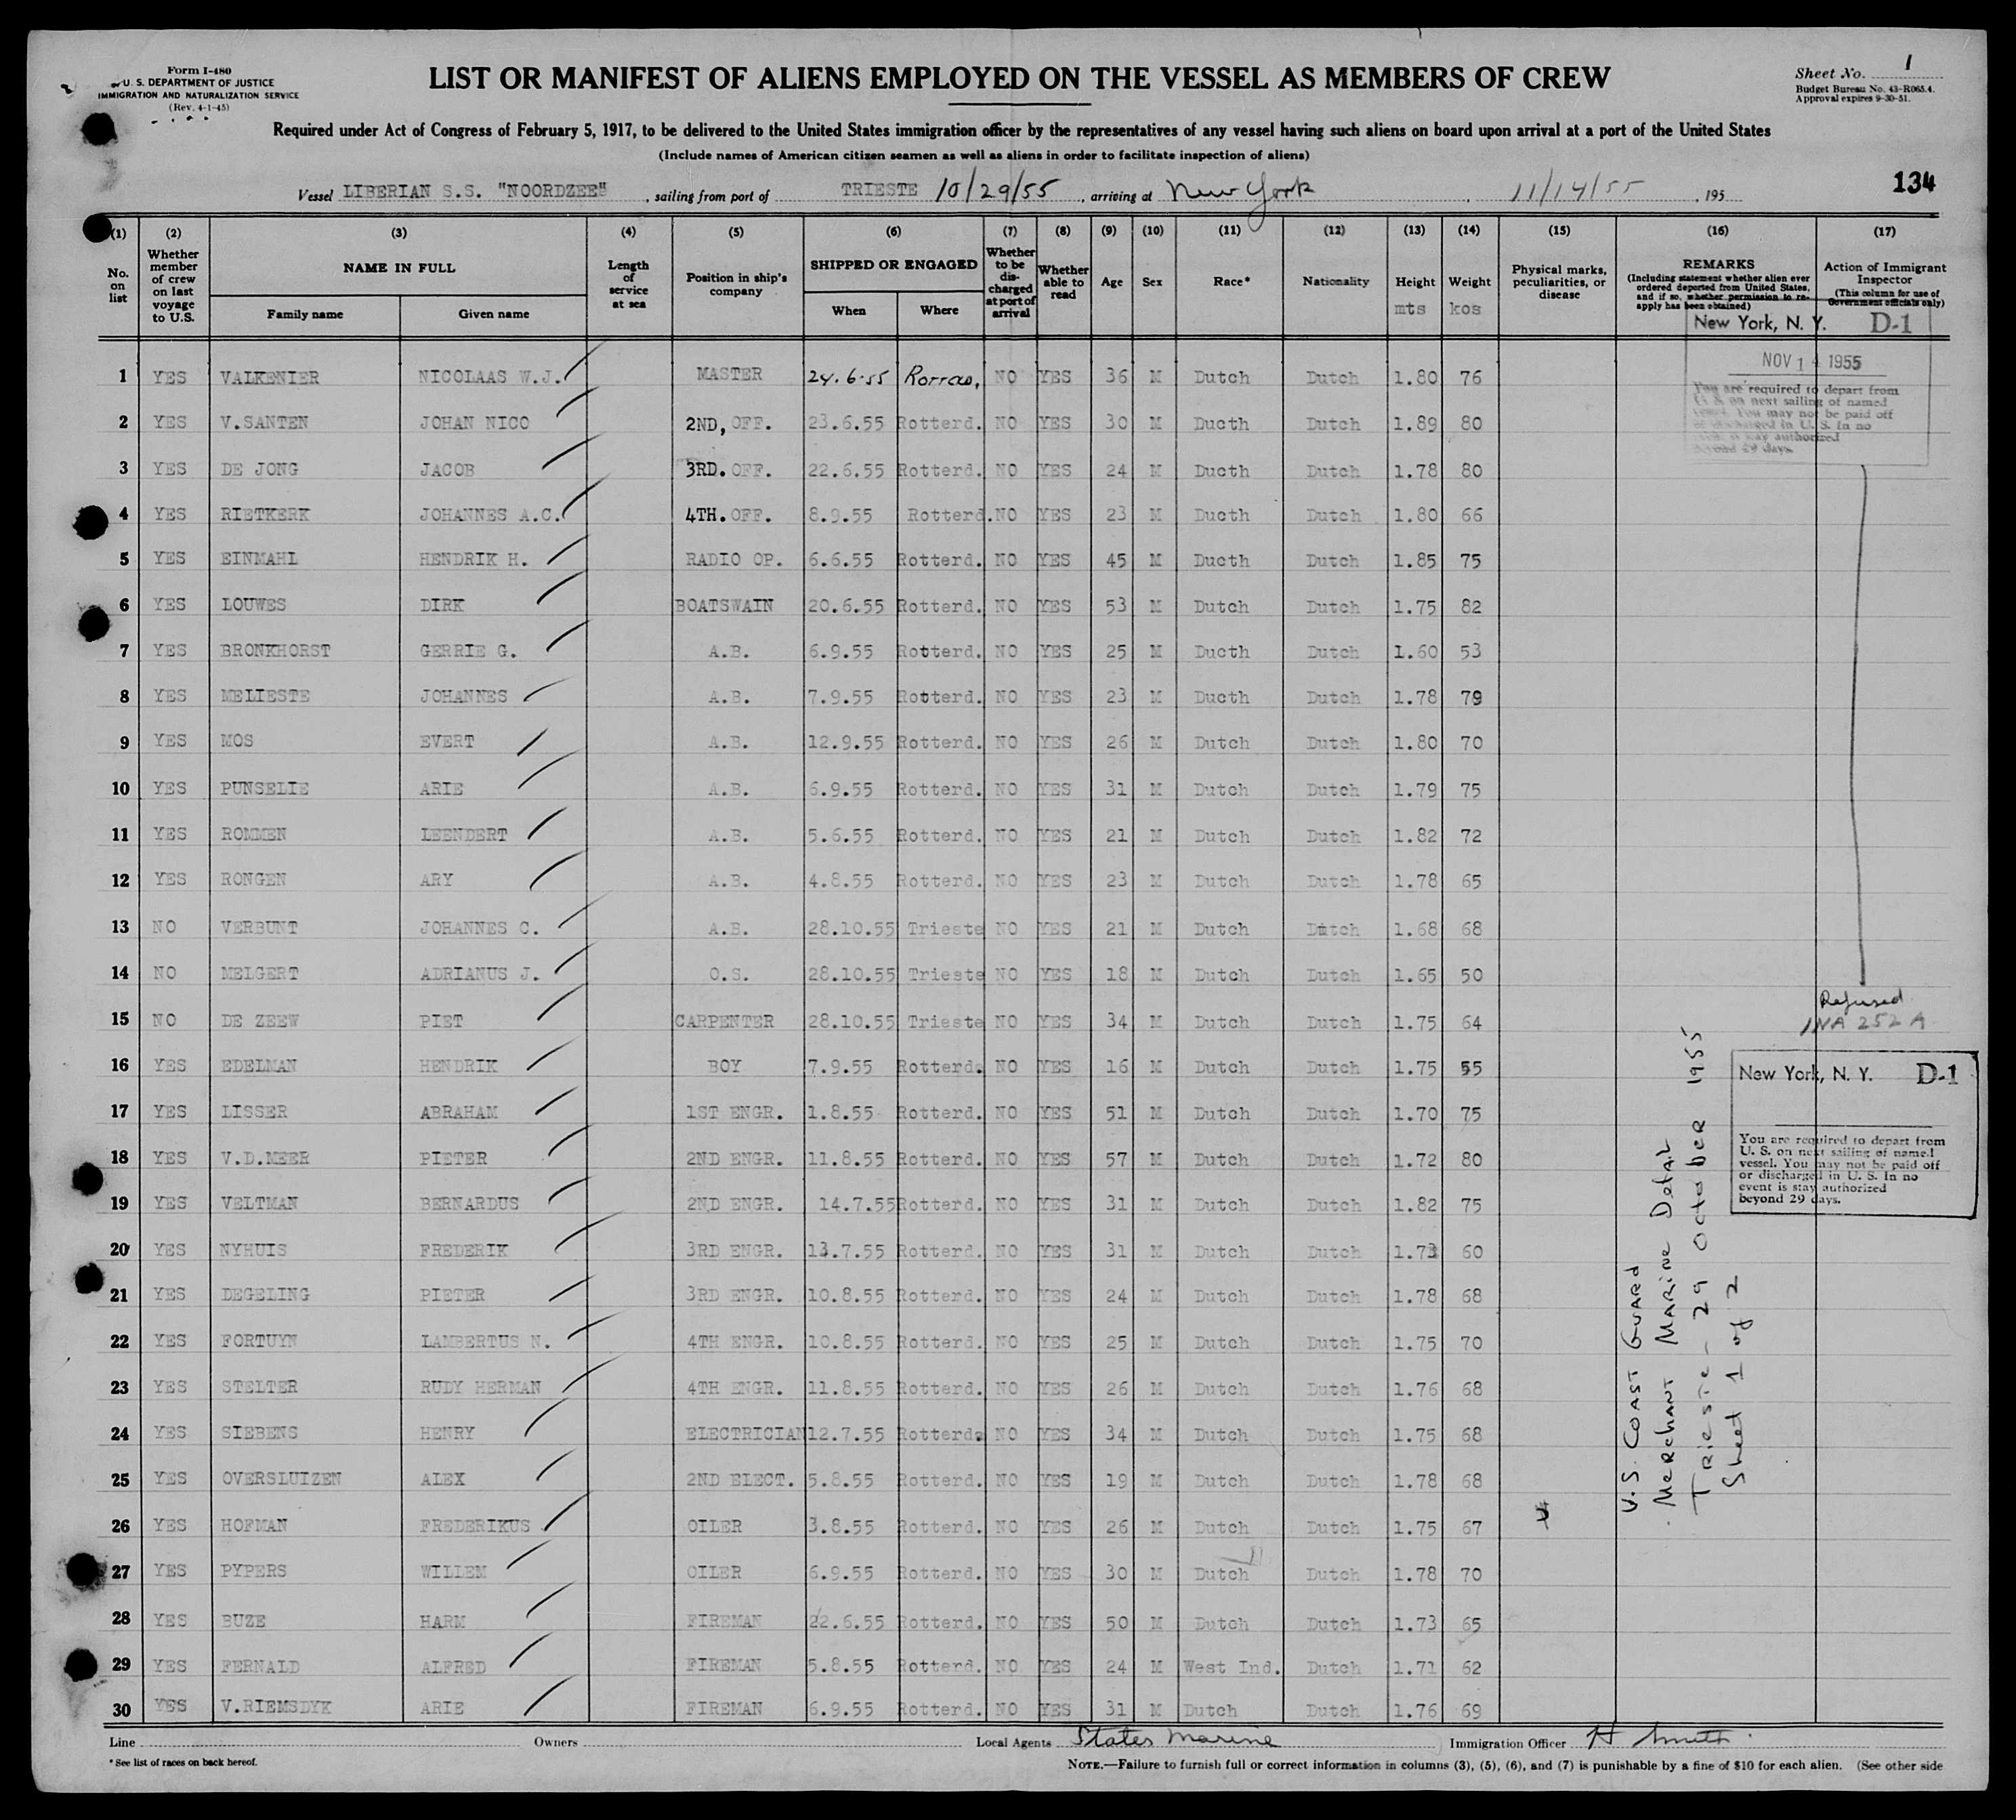 Form I-480
U. S. DEPARTMENT OF JUSTICE
IMMIGRATION AND NATURALIZATION SERVICE
(Rev. 4-1-45)
LIST OR MANIFEST OF ALIENS EMPLOYED ON THE VESSEL AS MEMBERS OF CREW
Sheet No. 1
Budget Bureau No. 43-R065.4.
Approval expires 9-30-51.
Required under Act of Congress of February 5, 1917, to be delivered to the United States immigration officer by the representatives of any vessel having such aliens on board upon arrival at a port of the United States
(Include names of American citizen seamen as well as aliens in order to facilitate inspection of aliens)
Vessel LIBERIAN S.S. "NOORDZEE", sailing from port of TRIESTE 10/29/55, arriving at New York, 11/14/55, 195
134
(1) (2) (3) (4) (5) (6) (7) (8) (9) (10) (11) (12) (13) (14) (15) (16) (17)
No. on list
Whether member of crew on last voyage to U.S.
NAME IN FULL
Family name
Given name
Length of service at sea
Position in ship's company
SHIPPED OR ENGAGED
When
Where
Whether to be discharged at port of arrival
Whether able to read
Age
Sex
Race*
Nationality
Height
mts
Weight
kos
Physical marks, peculiarities, or disease
REMARKS
(Including statement whether alien ever ordered deported from United States, and if so, whether permission to reapply has been obtained)
Action of Immigrant Inspector
(This column for use of Government officials only)
New York, N. Y. D-1
NOV 14 1955
You are required to depart from
U. S. on next sailing of named
vessel. You may not be paid off
or discharged in U. S. In no
event is stay authorized
beyond 29 days.
1 YES VALKENIER NICOLAAS W.J. MASTER 24.6.55 NO YES 36 M Dutch Dutch 1.80 76
2 YES V.SANTEN JOHAN NICO 2ND, OFF. 23.6.55 Rotterd. NO YES 30 M Ducth Dutch 1.89 80
3 YES DE JONG JACOB 3RD. OFF. 22.6.55 Rotterd. NO YES 24 M Ducth Dutch 1.78 80
4 YES RIETKERK JOHANNES A.C. 4TH. OFF. 8.9.55 Rotterd. NO YES 23 M Ducth Dutch 1.80 66
5 YES EINMAHL HENDRIK H. RADIO OP. 6.6.55 Rotterd. NO YES 45 M Ducth Dutch 1.85 75
6 YES LOUWES DIRK BOATSWAIN 20.6.55 Rotterd. NO YES 53 M Dutch Dutch 1.75 82
7 YES BRONKHORST GERRIE G. A.B. 6.9.55 Rotterd. NO YES 25 M Ducth Dutch 1.60 53
8 YES MELIESTE JOHANNES A.B. 7.9.55 Rotterd. NO YES 23 M Ducth Dutch 1.78 79
9 YES MOS EVERT A.B. 12.9.55 Rotterd. NO YES 26 M Dutch Dutch 1.80 70
10 YES PUNSELIE ARIE A.B. 6.9.55 Rotterd. NO YES 31 M Dutch Dutch 1.79 75
11 YES ROMMEN LEENDERT A.B. 5.6.55 Rotterd. NO YES 21 M Dutch Dutch 1.82 72
12 YES RONGEN ARY A.B. 4.8.55 Rotterd. NO YES 23 M Dutch Dutch 1.78 65
13 NO VERBUNT JOHANNES C. A.B. 28.10.55 Trieste NO YES 21 M Dutch Dutch 1.68 68
14 NO MELGERT ADRIANUS J. O.S. 28.10.55 Trieste NO YES 18 M Dutch Dutch 1.65 50
15 NO DE ZEEW PIET CARPENTER 28.10.55 Trieste NO YES 34 M Dutch Dutch 1.75 64 Refused INA 252 A
16 YES EDELMAN HENDRIK BOY 7.9.55 Rotterd. NO YES 16 M Dutch Dutch 1.75 55
17 YES LISSER ABRAHAM 1ST ENGR. 1.8.55 Rotterd. NO YES 51 M Dutch Dutch 1.70 75
18 YES V.D.MEER PIETER 2ND ENGR. 11.8.55 Rotterd. NO YES 57 M Dutch Dutch 1.72 80
19 YES VELTMAN BERNARDUS 2ND ENGR. 14.7.55 Rotterd. NO YES 31 M Dutch Dutch 1.82 75
20 YES NYHUIS FREDERIK 3RD ENGR. 13.7.55 Rotterd. NO YES 31 M Dutch Dutch 1.73 60
21 YES DEGELING PIETER 3RD ENGR. 10.8.55 Rotterd. NO YES 24 M Dutch Dutch 1.78 68
22 YES FORTUYN LAMBERTUS N. 4TH ENGR. 10.8.55 Rotterd. NO YES 25 M Dutch Dutch 1.75 70
23 YES STELTER RUDY HERMAN 4TH ENGR. 11.8.55 Rotterd. NO YES 26 M Dutch Dutch 1.76 68
24 YES SIEBENS HENRY ELECTRICIAN 12.7.55 Rotterd. NO YES 34 M Dutch Dutch 1.75 68
25 YES OVERSLUIZEN ALEX 2ND ELECT. 5.8.55 Rotterd. NO YES 19 M Dutch Dutch 1.78 68
26 YES HOFMAN FREDERIKUS OILER 3.8.55 Rotterd. NO YES 26 M Dutch Dutch 1.75 67
27 YES PYPERS WILLEM OILER 6.9.55 Rotterd. NO YES 30 M Dutch Dutch 1.78 70
28 YES BUZE HARM FIREMAN 22.6.55 Rotterd. NO YES 50 M Dutch Dutch 1.73 65
29 YES FERNALD ALFRED FIREMAN 5.8.55 Rotterd. NO YES 24 M West Ind. Dutch 1.71 62
30 YES V.RIEMSDYK ARIE FIREMAN 6.9.55 Rotterd. NO YES 31 M Dutch Dutch 1.76 69
New York, N. Y. D-1
You are required to depart from
U. S. on next sailing of named
vessel. You may not be paid off
or discharged in U. S. In no
event is stay authorized
beyond 29 days.
U.S. COAST GUARD
MERCHANT MARINE DETAIL
TRIESTE - 29 OctobeR 1955
Sheet 1 of 2
Line Owners Local Agents States Marine Immigration Officer H Smith
* See list of races on back hereof.
NOTE.—Failure to furnish full or correct information in columns (3), (5), (6), and (7) is punishable by a fine of $10 for each alien. (See other side